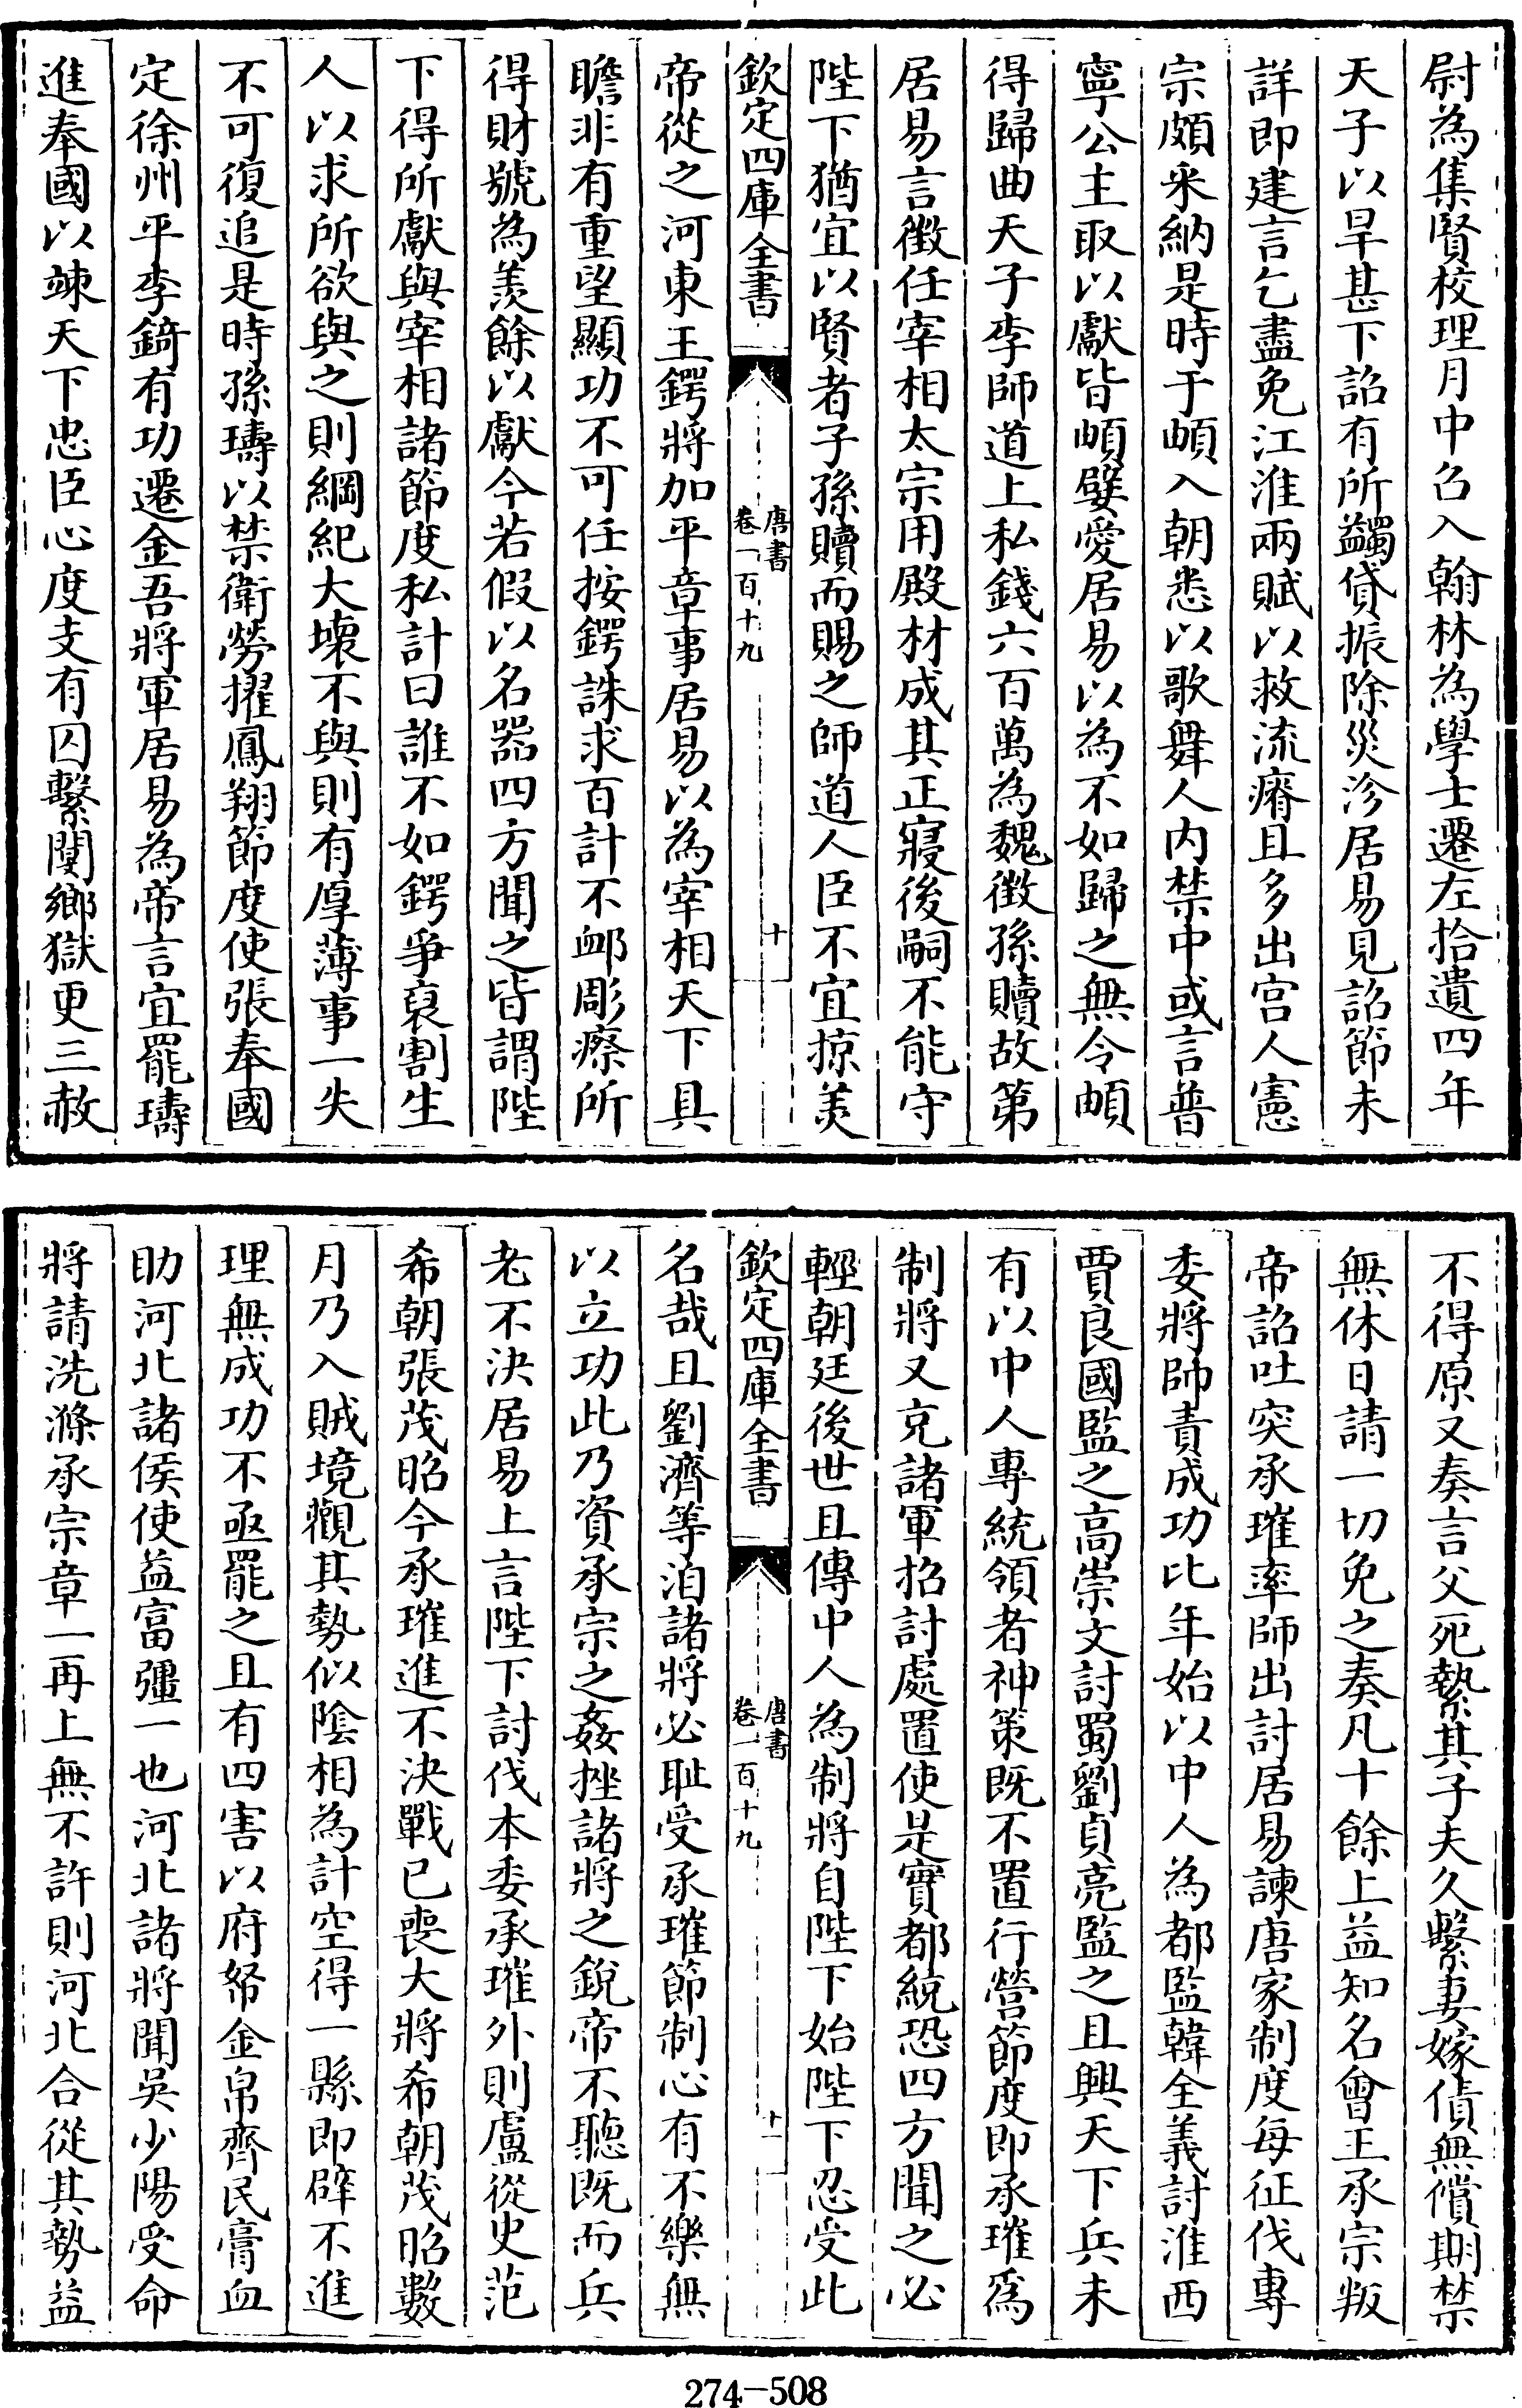 尉為集賢校理月中召入翰林為學士遷左拾遺四年
天子以旱甚下詔有所蠲貸振除災沴居易見詔節未
詳即建言乞盡免江淮兩賦以救流瘠且多出宫人憲
宗頗采納是時于頔入朝悉以歌舞人内禁中或言普
寧公主取以獻皆頔嬖愛居易以為不如歸之無令頔
得歸曲天子李師道上私錢六百萬為魏徵孫贖故第
居易言徵任宰相太宗用殿材成其正寢後嗣不能守
陛下猶宜以賢者子孫贖而賜之師道人臣不宜掠美
欽定四庫全書
唐書
卷一百十九
十
帝從之河東王鍔將加平章事居易以為宰相天下具
瞻非有重望顯功不可任按鍔誅求百計不衈彫瘵所
得財號為羨餘以獻今若假以名器四方聞之皆謂陛
下得所獻與宰相諸節度私計曰誰不如鍔爭裒割生
人以求所欲與之則綱紀大壊不與則有厚薄事一失
不可復追是時孫璹以禁衛勞擢鳳翔節度使張奉國
定徐州平李錡有功遷金吾將軍居易為帝言宜罷璹
進奉國以竦天下忠臣心度支有囚繫閿鄉獄更三赦
不得原又奏言父死縶其子夫久繫妻嫁債無償期禁
無休日請一切免之奏凡十餘上益知名會王承宗叛
帝詔吐突承璀率師出討居易諫唐家制度每征伐專
委將帥責成功比年始以中人為都監韓全義討淮西
賈良國監之高崇文討蜀劉貞亮監之且興天下兵未
有以中人專統領者神策既不置行營節度即承璀爲
制將又充諸軍招討處置使是實都統恐四方聞之必
輕朝廷後世且傳中人為制將自陛下始陛下忍受此
欽定四庫全書
唐書
卷一百十九
十一
名哉且劉濟等洎諸將必耻受承璀節制心有不樂無
以立功此乃資承宗之姦挫諸將之銳帝不聽既而兵
老不決居易上言陛下討伐本委承璀外則盧從史范
希朝張茂昭今承璀進不決戰已喪大將希朝茂昭數
月乃入賊境觀其勢似陰相為計空得一縣即壁不進
理無成功不亟罷之且有四害以府帑金帛齊民膏血
助河北諸侯使益富彊一也河北諸將聞吳少陽受命
將請洗滌承宗章一再上無不許則河北合從其勢益
274-508